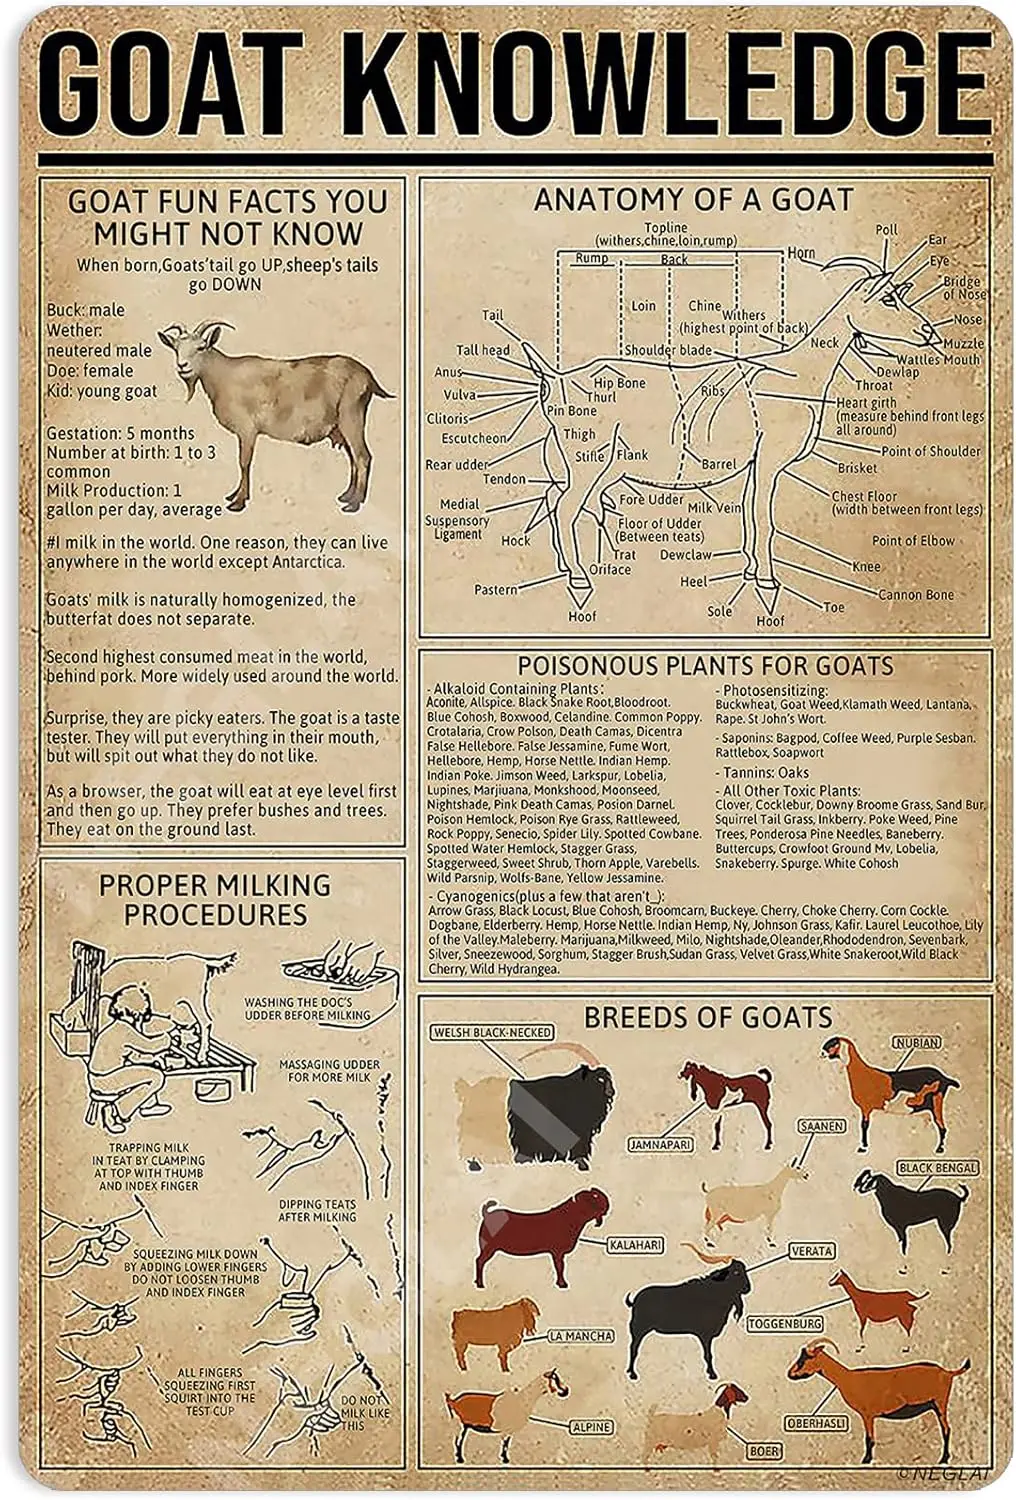 GOAT KNOWLEDGE
GOAT FUN FACTS YOU
MIGHT NOT KNOW
When born,Goats'tail go UP,sheep's tails
go DOWN
Buck: male
Wether:
neutered male
Doe: female
Kid: young goat
Gestation: 5 months
Number at birth: 1 to 3
common
Milk Production: 1
gallon per day, average
#I milk in the world. One reason, they can live
anywhere in the world except Antarctica.
Goats' milk is naturally homogenized, the
butterfat does not separate.
Second highest consumed meat in the world,
behind pork. More widely used around the world.
Surprise, they are picky eaters. The goat is a taste
tester. They will put everything in their mouth,
but will spit out what they do not like.
As a browser, the goat will eat at eye level first
and then go up. They prefer bushes and trees.
They eat on the ground last.
ANATOMY OF A GOAT
Topline
(withers,chine,loin,rump)
Rump
Back
Horn
Poll
Ear
Eye
Bridge
of Nose
Nose
Muzzle
Wattles Mouth
Dewlap
Throat
Neck
Loin
Chine
Withers
(highest point of back)
Shoulder blade
Tail
Tall head
Anus
Vulva
Clitoris
Escutcheon
Rear udder
Tendon
Medial
Suspensory
Ligament
Hock
Pastern
Hoof
Hip Bone
Thurl
Pin Bone
Thigh
Stifle
Flank
Ribs
Barrel
Fore Udder
Milk Vein
Floor of Udder
(Between teats)
Trat
Oriface
Dewclaw
Heel
Sole
Hoof
Toe
Heart girth
(measure behind front legs
all around)
Point of Shoulder
Brisket
Chest Floor
(width between front legs)
Point of Elbow
Knee
Cannon Bone
POISONOUS PLANTS FOR GOATS
- Alkaloid Containing Plants:
Aconite, Allspice. Black Snake Root,Bloodroot.
Blue Cohosh, Boxwood, Celandine. Common Poppy.
Crotalaria, Crow Polson, Death Camas, Dicentra
False Hellebore. False Jessamine, Fume Wort,
Hellebore, Hemp, Horse Nettle. Indian Hemp.
Indian Poke. Jimson Weed, Larkspur, Lobelia,
Lupines, Marjiuana, Monkshood, Moonseed,
Nightshade, Pink Death Camas, Posion Darnel.
Poison Hemlock, Poison Rye Grass, Rattleweed,
Rock Poppy, Senecio, Spider Lily. Spotted Cowbane.
Spotted Water Hemlock, Stagger Grass,
Staggerweed, Sweet Shrub, Thorn Apple, Varebells.
Wild Parsnip, Wolfs-Bane, Yellow Jessamine.
- Photosensitizing:
Buckwheat, Goat Weed,Klamath Weed, Lantana,
Rape. St John's Wort.
- Saponins: Bagpod, Coffee Weed, Purple Sesban.
Rattlebox, Soapwort
- Tannins: Oaks
- All Other Toxic Plants:
Clover, Cocklebur, Downy Broome Grass, Sand Bur,
Squirrel Tail Grass, Inkberry. Poke Weed, Pine
Trees, Ponderosa Pine Needles, Baneberry.
Buttercups, Crowfoot Ground Mv, Lobelia,
Snakeberry. Spurge. White Cohosh
- Cyanogenics(plus a few that aren't_):
Arrow Grass, Black Locust, Blue Cohosh, Broomcarn, Buckeye. Cherry, Choke Cherry. Corn Cockle.
Dogbane, Elderberry. Hemp, Horse Nettle. Indian Hemp, Ny, Johnson Grass, Kafir. Laurel Leucothoe, Lily
of the Valley.Maleberry. Marijuana,Milkweed, Milo, Nightshade,Oleander,Rhododendron, Sevenbark,
Silver, Sneezewood, Sorghum, Stagger Brush,Sudan Grass, Velvet Grass,White Snakeroot,Wild Black
Cherry, Wild Hydrangea.
PROPER MILKING
PROCEDURES
WASHING THE DOC'S
UDDER BEFORE MILKING
MASSAGING UDDER
FOR MORE MILK
TRAPPING MILK
IN TEAT BY CLAMPING
AT TOP WITH THUMB
AND INDEX FINGER
DIPPING TEATS
AFTER MILKING
SQUEEZING MILK DOWN
BY ADDING LOWER FINGERS
DO NOT LOOSEN THUMB
AND INDEX FINGER
ALL FINGERS
SQUEEZING FIRST
SQUIRT INTO THE
TEST CUP
DO NOT
MILK LIKE
THIS
BREEDS OF GOATS
WELSH BLACK-NECKED
NUBIAN
JAMNAPARI
SAANEN
BLACK BENGAL
KALAHARI
VERATA
LA MANCHA
TOGGENBURG
ALPINE
BOER
OBERHASLI
©NEGLAI